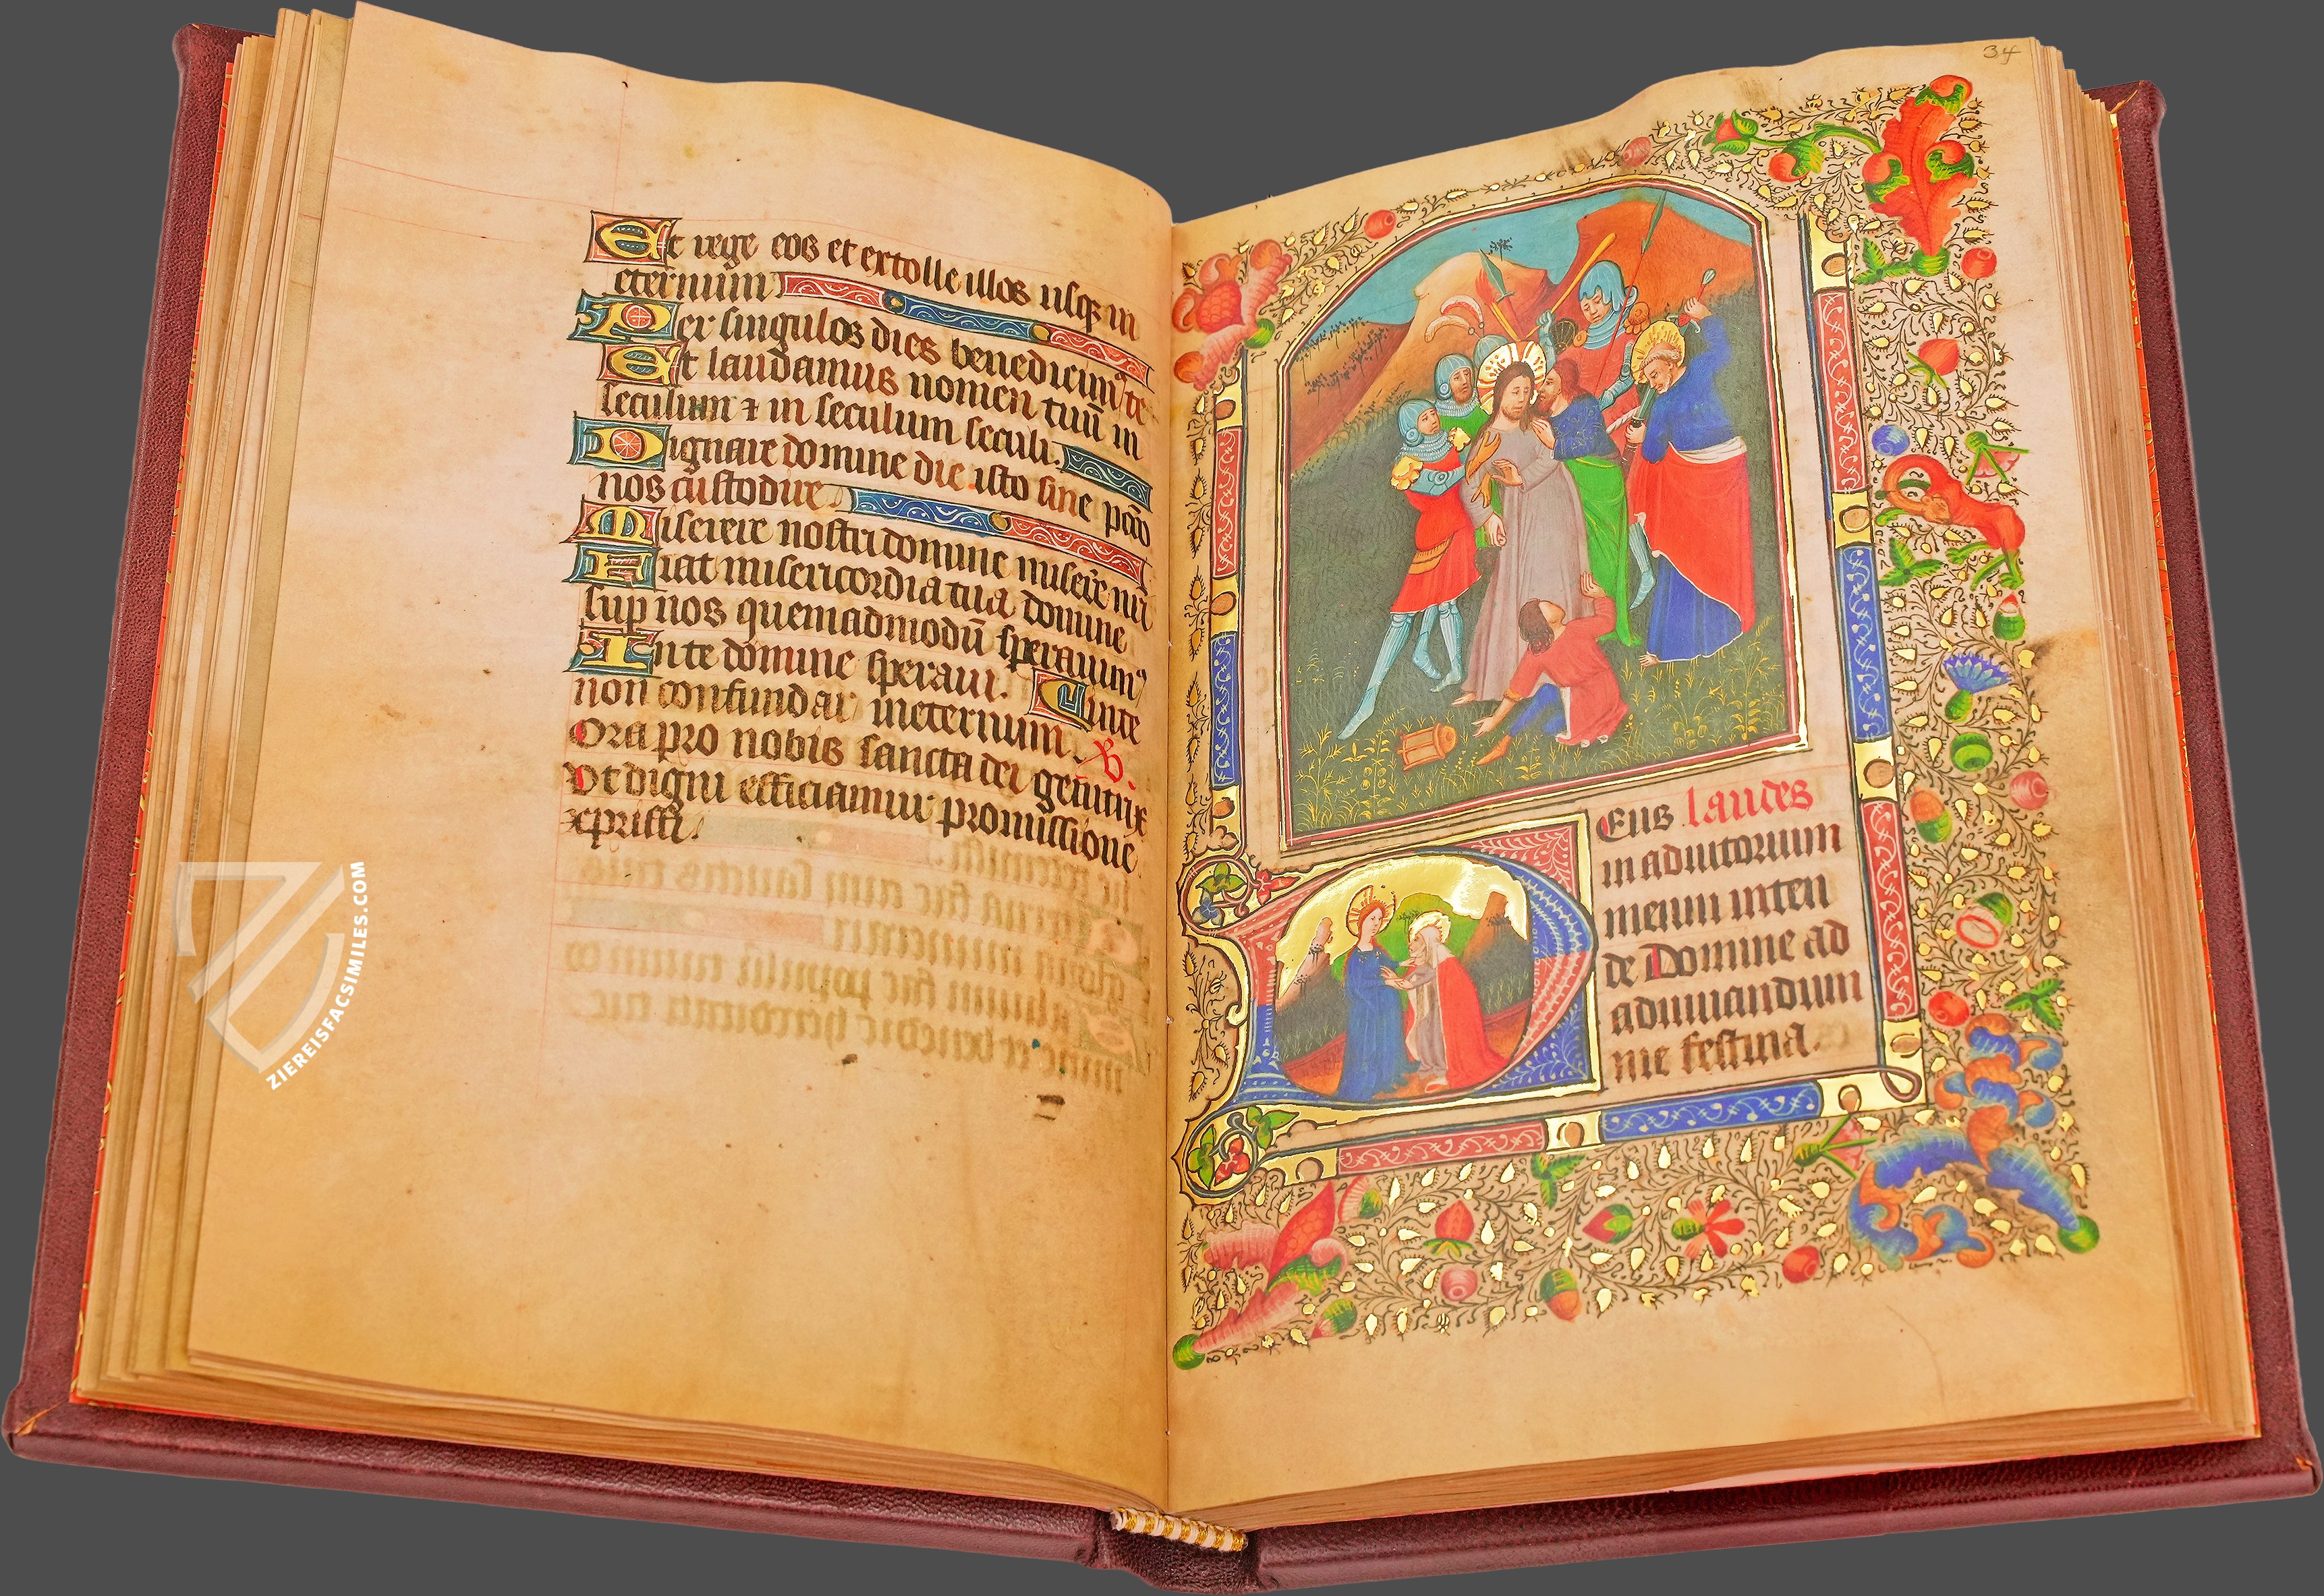 Et rege eos et extolle illos usq; in
eternum
Per singulos dies benedicim9 te
Et laudamus nomen tuū in
seculum ⁊ in seculum seculi.
Dignare domine die isto sine pccō
nos custodire
Miserere nostri domine misere nri
Fiat misericordia tua domine
sup nos quemadmodū speravim9
In te domine speravi.
non confundar ineternum. ℣.
Ora pro nobis sancta dei genitrix
Vt digni efficiamur promissione
xpristi.
34
Eus laudes
in adiutorium
meum inten
de Domine ad
adiuuandum
me festina.
ZIEREISFACSIMILES.COM